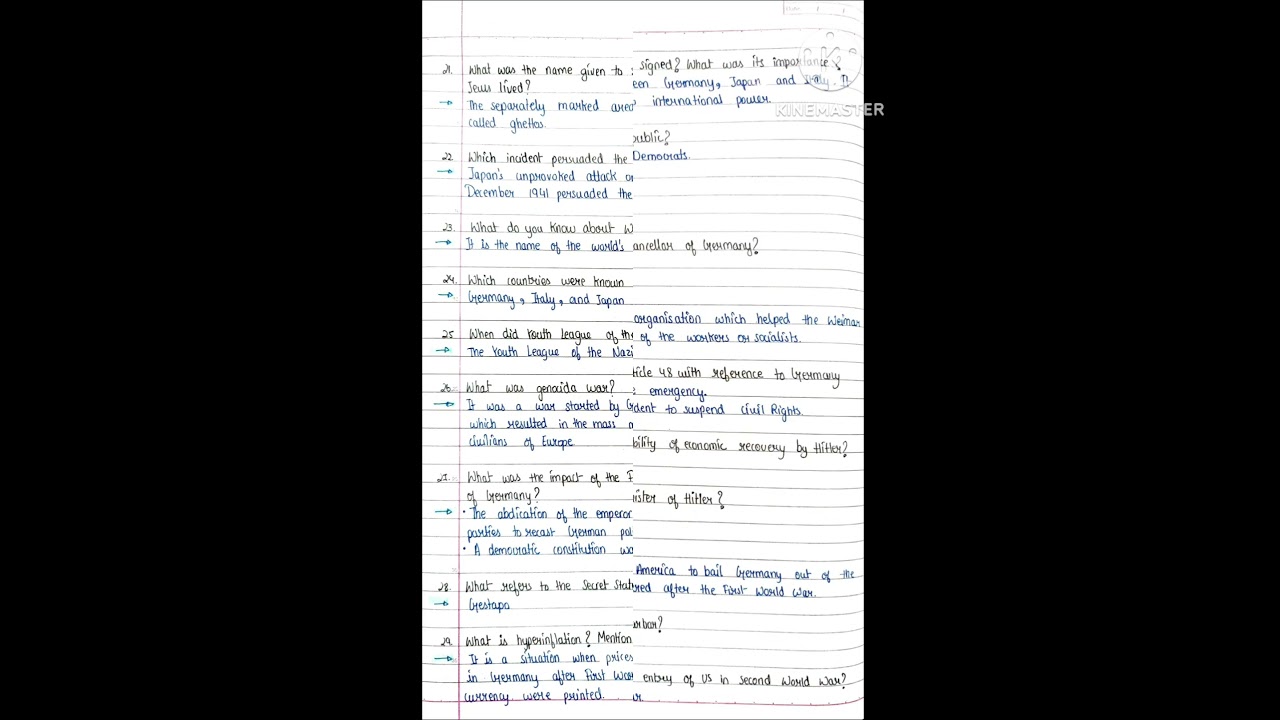 21. What was the name given to
Jews lived?
→ The separately marked areas
called ghettos.
22. Which incident persuaded the
→ Japan's unprovoked attack on
December 1941 persuaded the
23. What do you know about W
→ It is the name of the world's
24. Which countries were known
→ Germany, Italy, and Japan
25. When did Youth League of the
→ The Youth League of the Nazi
26. What was genocida war?
→ It was a war started by G
which resulted in the mass
civilians of Europe
27. What was the impact of the F
of Germany?
→ • The abdication of the emperor
parties to recast German pol
• A democratic constitution wa
28. What refers to the Secret State
→ Gestapo
29. What is hyperinflation? Mention
→ It is a situation when prices
in Germany after First Wor
currency were printed.
signed? What was its importance?
een Germany, Japan and Italy. It
international power.
public?
Democrats.
ancellor of Germany?
organisation which helped the Weimar
of the workers or socialists.
ticle 48 with reference to Germany
: emergency.
dent to suspend civil Rights.
bility of economic recovery by Hitler?
ister of Hitler?
America to bail Germany out of the
red after the First World War.
rbar?
entry of US in second World War?
or.
KINEMASTER